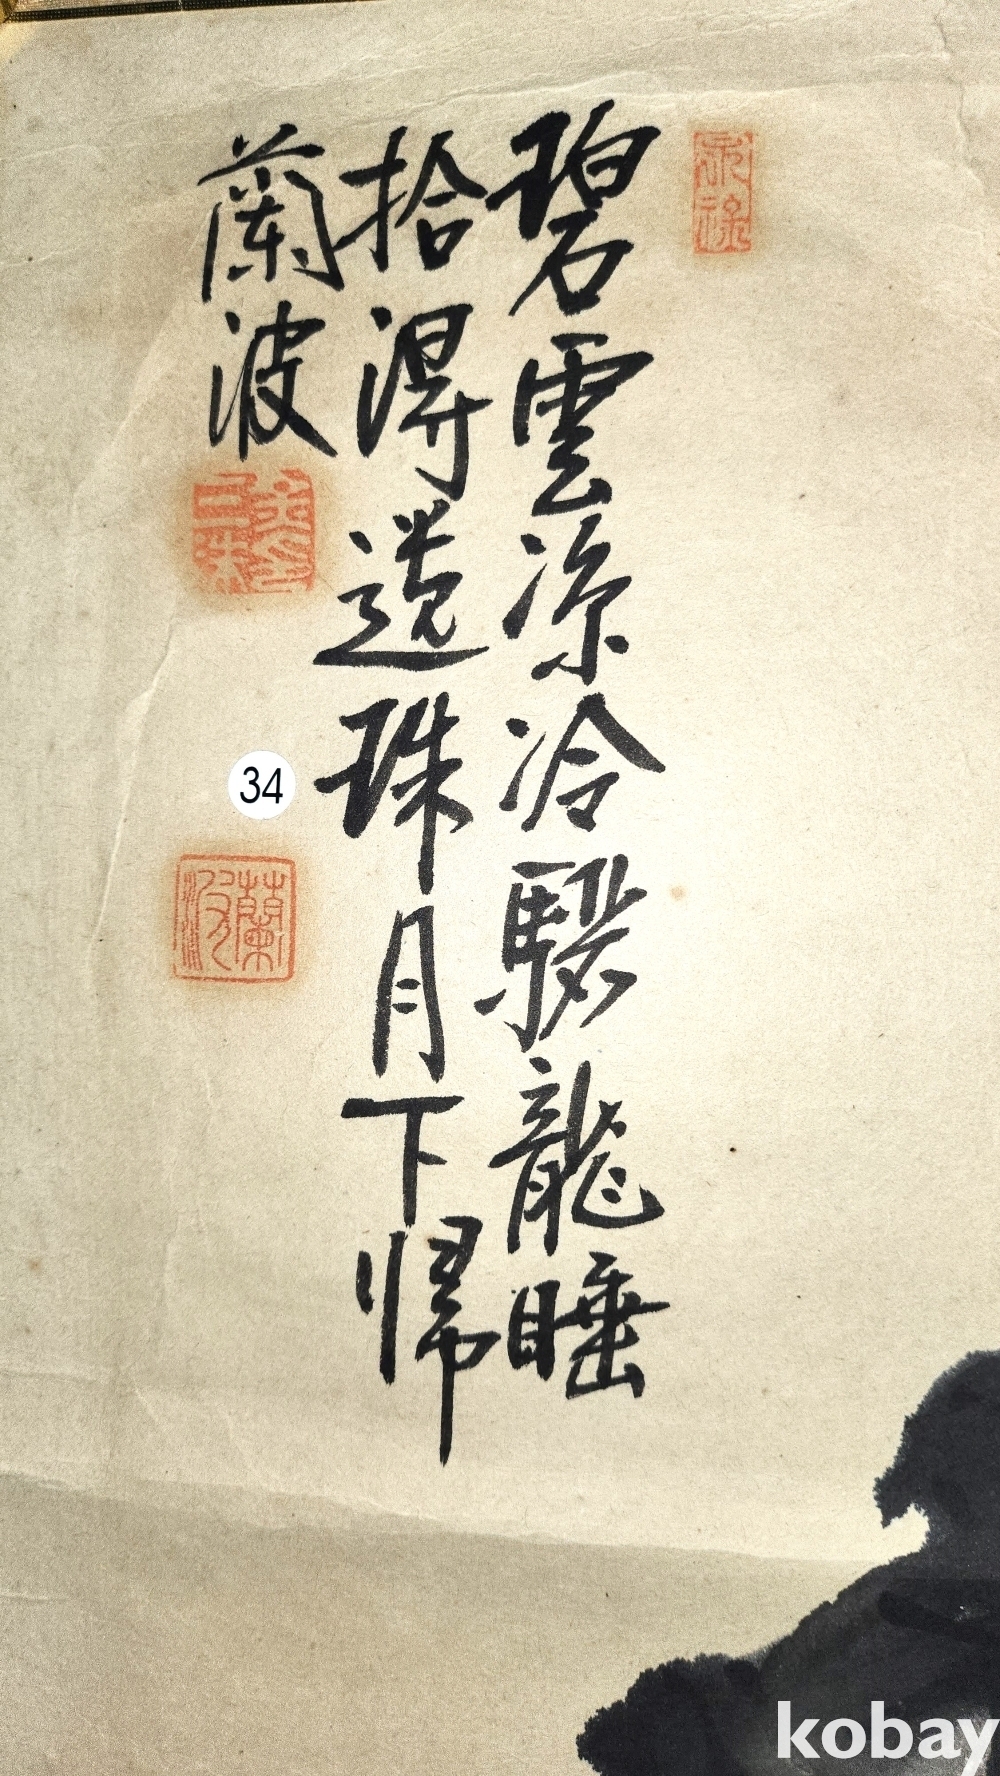 碧雲凉冷驪龍睡
拾淂遺珠月下帰
蘭波
蘭波
34
kobay